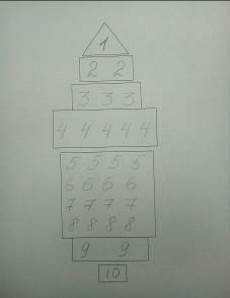 1
2 2
3 3 3
4 4 4 4 4
5 5 5 5
6 6 6 6
7 7 7 7
8 8 8 8
9 9
10